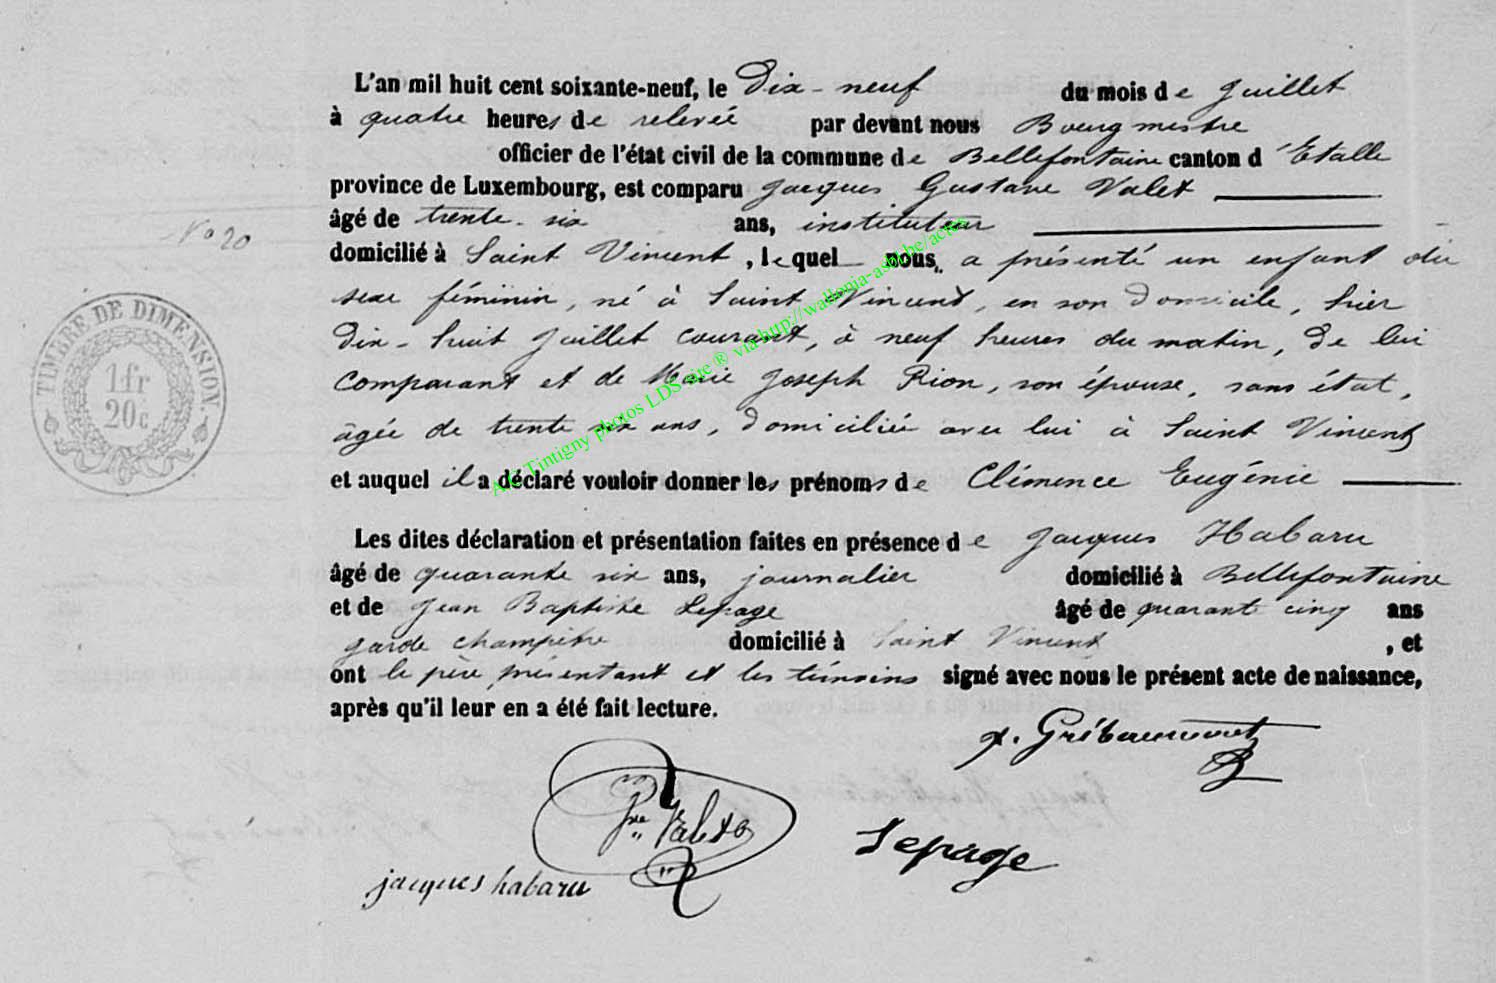 L'an mil huit cent soixante-neuf, le Dix-neuf du mois de Juillet
à quatre heures de relevée par devant nous Bourgmestre
officier de l'état civil de la commune de Bellefontaine canton d'Etalle
province de Luxembourg, est comparu Jacques Gustave Valet
âgé de trente-six ans, instituteur
No 20
domicilié à Saint Vincent, lequel nous a présenté un enfant du
sexe féminin, né à Saint Vincent, en son domicile, hier
dix-huit Juillet courant, à neuf heures du matin, de lui
comparant et de Marie Joseph Rion, son épouse, sans état,
âgée de trente six ans, domiciliée avec lui à Saint Vincent
et auquel il a déclaré vouloir donner les prénoms de Clémence Eugénie
Les dites déclaration et présentation faites en présence de Jacques Habaru
âgé de quarante six ans, journalier domicilié à Bellefontaine
et de Jean Baptiste Lepage âgé de quarante cinq ans
garde champêtre domicilié à Saint Vincent, et
ont le père présentant et les témoins signé avec nous le présent acte de naissance,
après qu'il leur en a été fait lecture.
TIMBRE DE DIMENSION.
1 fr
20 c
Tintigny photos LDS site ® via http://wallonia-asbl.be/actes
Valet
Lepage
jacques habaru